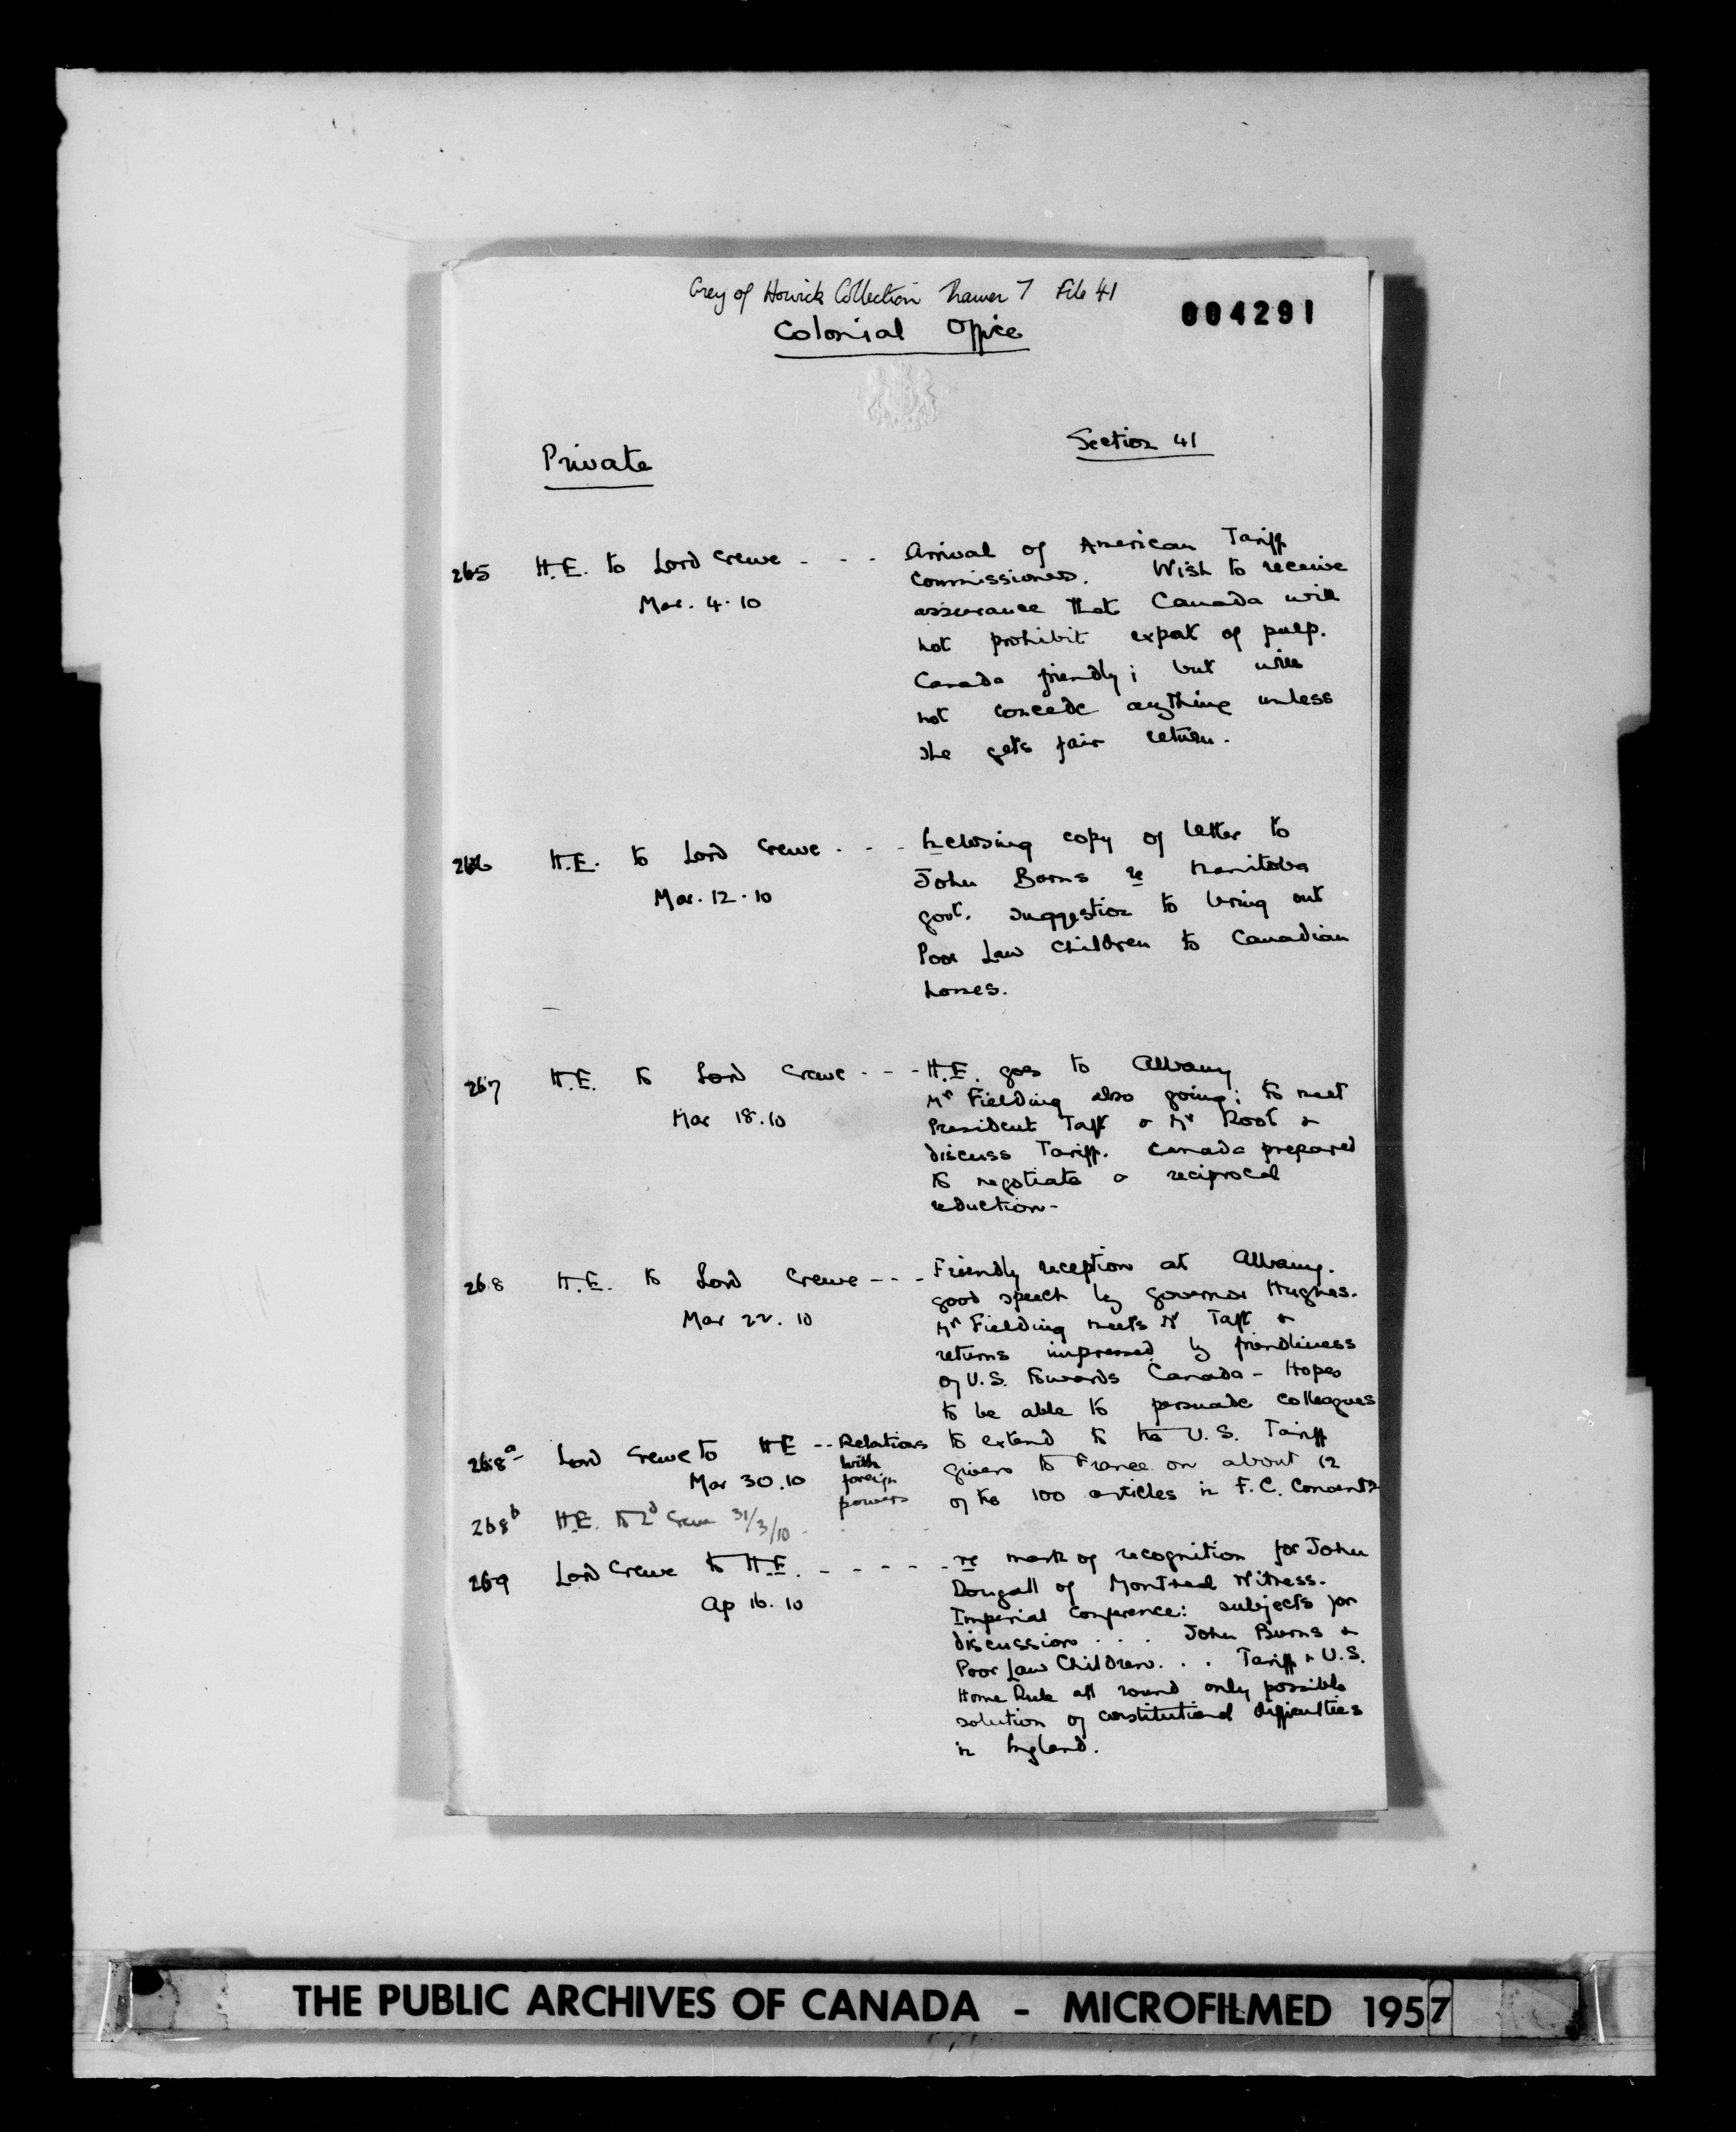 Grey of Howick Collection Drawer 7 File 41
004291
Colonial Office
Section 41
Private
265 H.E. to Lord Crewe - - - Arrival of American Tariff
Mar. 4. 10 Commissioners. Wish to receive
assurance that Canada will
not prohibit export of pulp.
Canada friendly; but will
not concede anything unless
she gets fair return.
266 H.E. to Lord Crewe - - - Enclosing copy of letter to
Mar. 12. 10 John Burns re Manitoba
govt. suggestion to bring out
Poor Law Children to Canadian
homes.
267 H.E. to Lord Crewe - - - H.E. goes to Albany
Mar 18. 10 Mr Fielding also going; to meet
President Taft & Mr Root &
discuss Tariff. Canada prepared
to negotiate a reciprocal
reduction-
268 H.E. to Lord Crewe - - - Friendly reception at Albany.
Mar 22. 10 good speech by Governor Hughes.
Mr Fielding meets Mr Taft &
returns impressed by friendliness
of U.S. towards Canada - Hopes
to be able to persuade colleagues
to extend to the U.S. Tariff
given to France on about 12
of the 100 articles in F.C.
268a Lord Crewe to HE -- Relations
Mar 30. 10 with
foreign
powers
268b H.E. to Ld Crewe 31/3/10 - - - -
269 Lord Crewe to H.E. - - - - - re mark of recognition for John
Ap 16. 10 Dougall of Montreal Witness.
Imperial Conference: subjects for
discussion . . . John Burns &
Poor Law Children. . . Tariff & U.S.
Home Rule all round only possible
solution of constitutional difficulties
in England.
THE PUBLIC ARCHIVES OF CANADA - MICROFILMED 1957